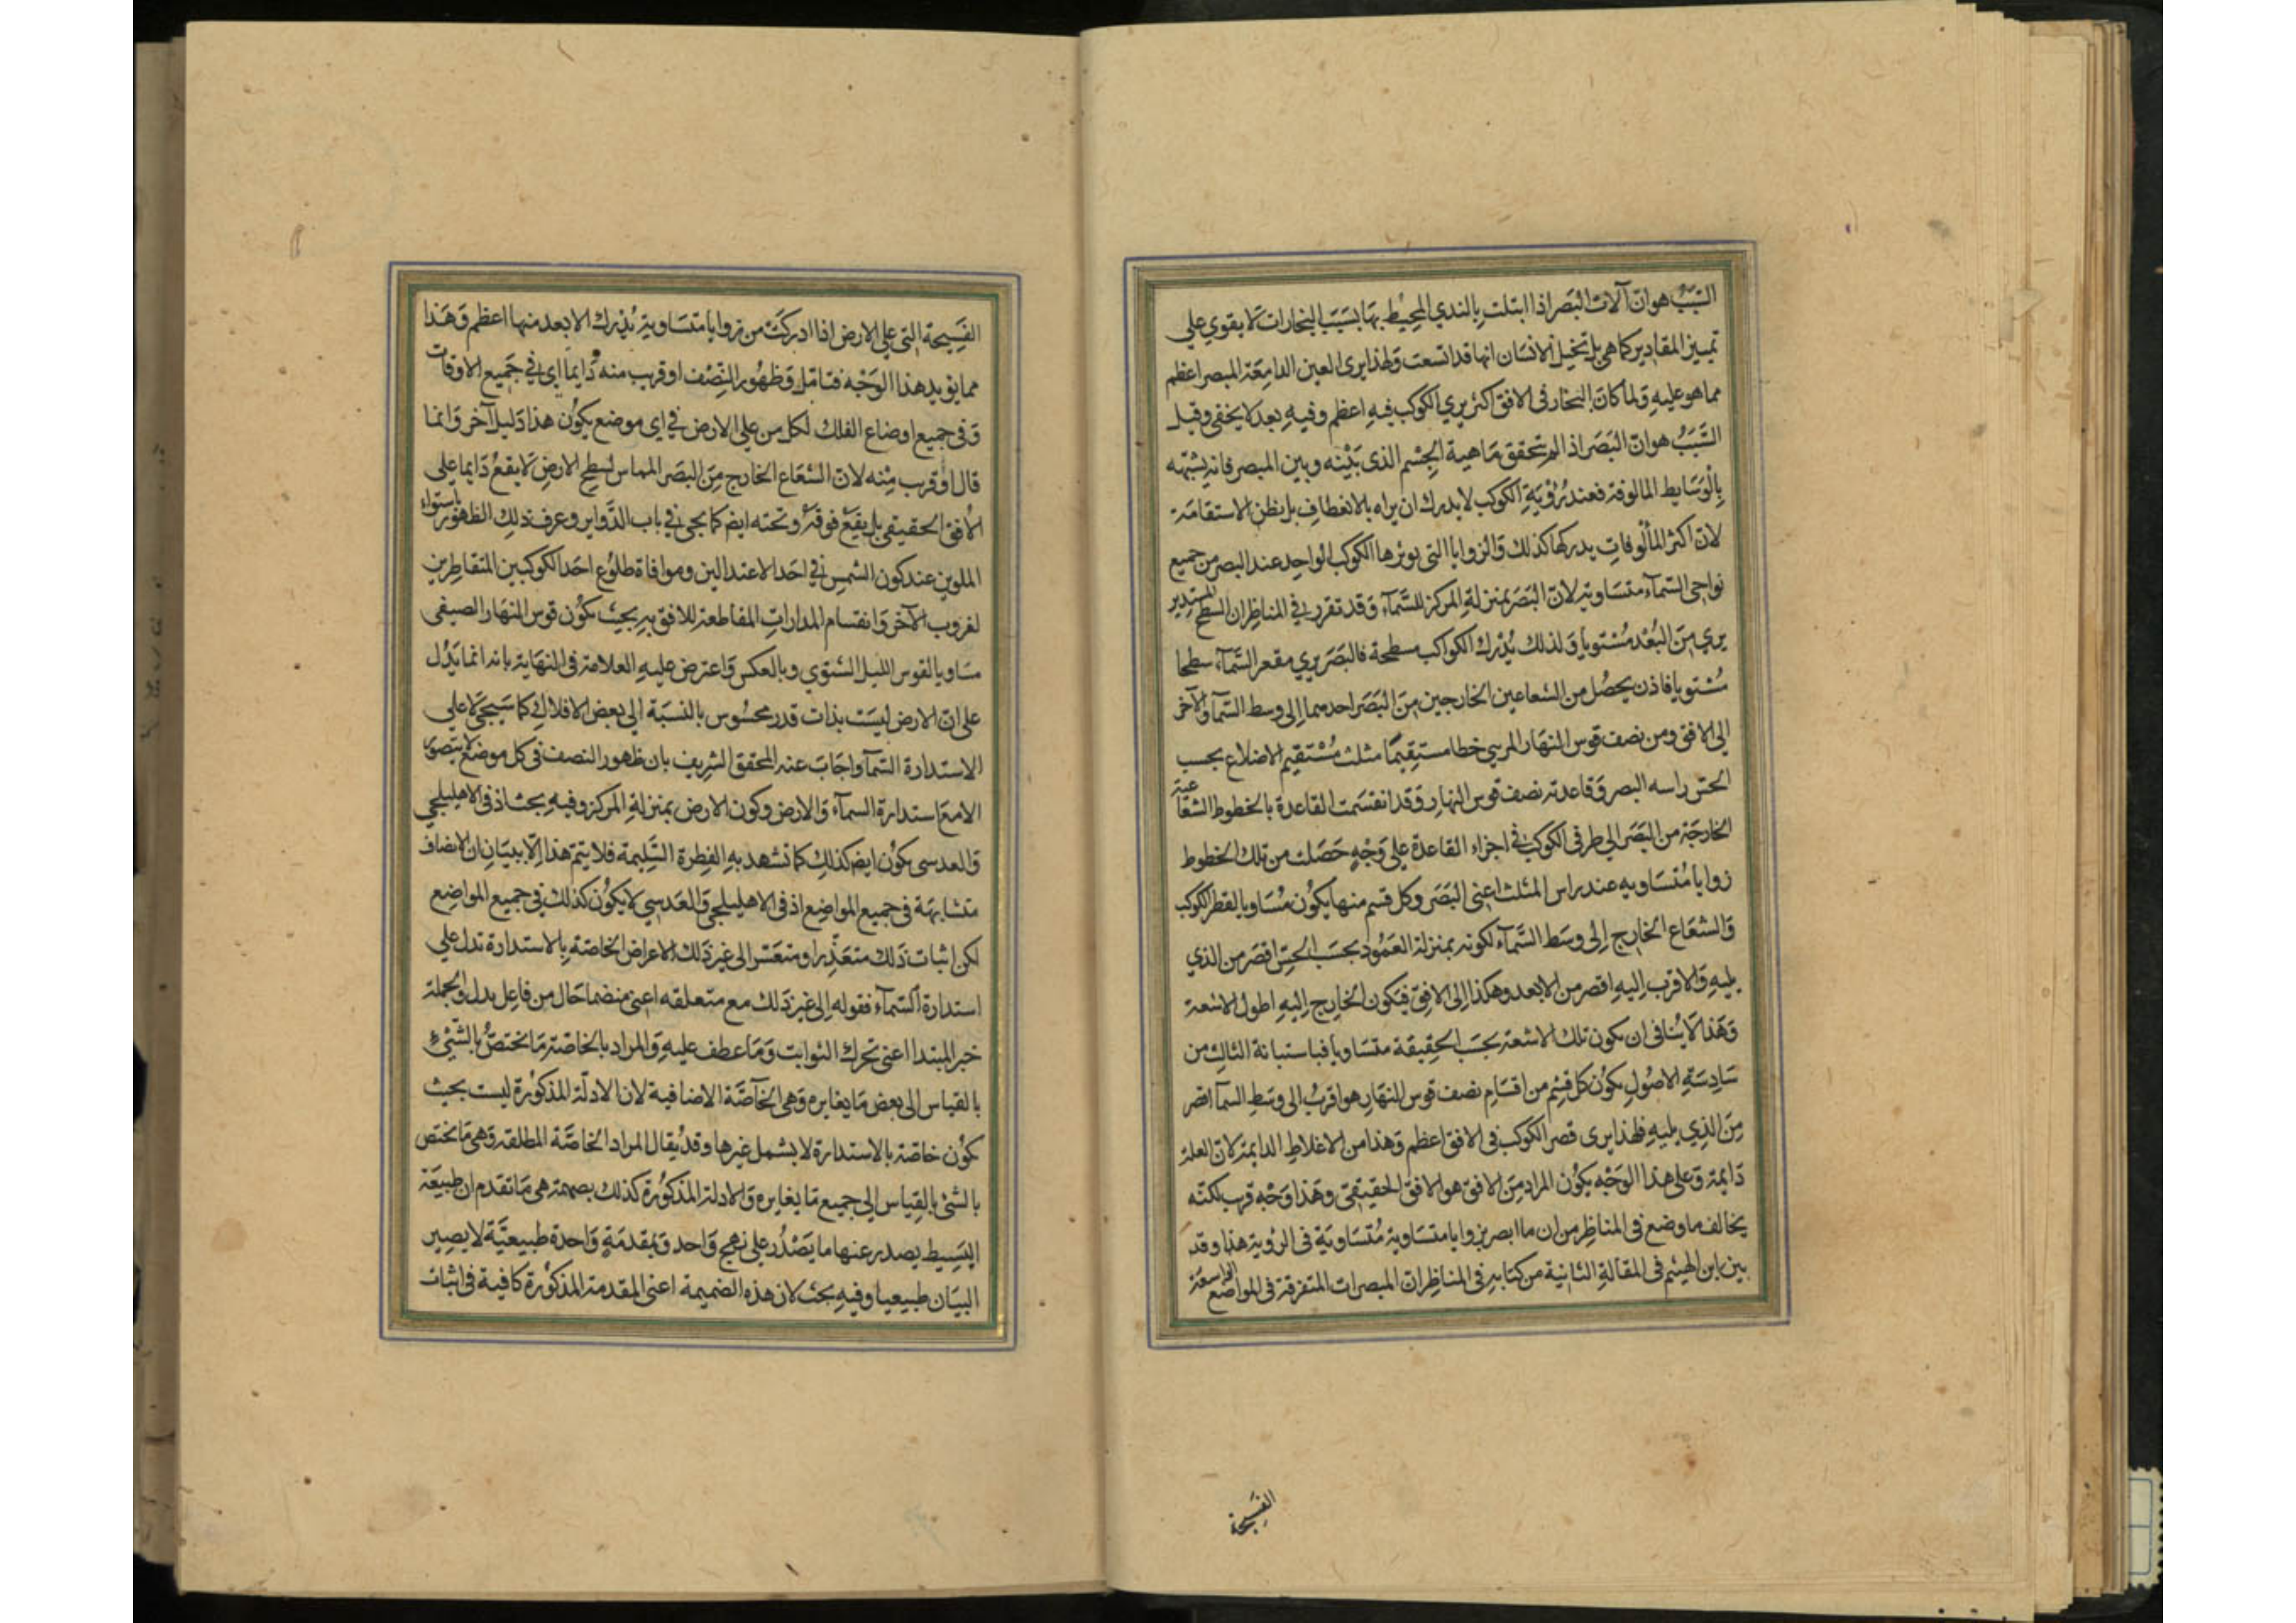 السَّبَبُ هو ان آلات البصر اذا ابتلت بالندي المحيط بها بسبب البخارات لا يقوي علي
تمييز المقادير كما هي بل تخيل الانسان انها قد اتسعت ولهذا يرى العين الدامعة المبصر اعظم
مما هو عليه ولما كان البخار فى الافق اكثر يري الكوكب فيه اعظم وفيه بعد لا يخفى وقيل
السَّبَبُ هو ان البصر اذ الم يتحقق ماهية الجسم الذى بينه وبين المبصر فانه يشبهه
بالوسايط المالوفة فعند رؤية الكوكب لا يدرك ان يراه بالانعطاف بل يظن الاستقامة
لان اكثر المألوفات يدركها كذلك والزوايا التى يوترها الكوكب الواحد عند البصر من جميع
نواحى السمآء متساوية لان البصر بمنزلة المركز للسمآء وقد تقرر في المناظر ان السطح المستدير
يري من البعد مستويا ولذلك يدرك الكواكب مسطحة فالبصر يري مقعر السمآء سطحا
مستويا فاذن يحصل من الشعاعين الخارجين من البصر احدهما الى وسط السمآ والآخر
الي الافق ومن نصف قوس النهار المريي خطا مستقيمًا مثلث مستقيم الاضلاع بحسب
الحس راسه البصر وقاعدته نصف قوس النهار وقد انقسمت القاعدة بالخطوط الشعاعية
الخارجة من البصر الي طرفى الكوكب في اجزاء القاعدة علي وجه حصلت من تلك الخطوط
زوايا متساويه عند راس المثلث اعنى البصر وكل قسم منها يكون مساويا لقطر الكوكب
والشعاع الخارج الى وسط السمآء لكونه بمنزلة العمود بحسب الحس اقصر من الذي
يليه والاقرب اليه اقصر من الابعد وهكذا الى الافق فيكون الخارج اليه اطول الاشعة
وهذا لا ينافى ان يكون تلك الاشعة بحسب الحقيقة متساويا فباستبانة الثالث من
سادسة الاصول يكون كل قسم من اقسام نصف قوس النهار هو اقرب الى وسط السمآ اقصر
من الذي يليه فلهذا يرى قصر الكوكب فى الافق اعظم وهذا من الاغلاط الدايمة لان العلة
دايمة وعلى هذا الوجه يكون المراد من الافق هو الافق الحقيقى وهذا وجه قريب لكنه
يخالف ما وضع فى المناظر من ان ما ابصر بزوايا متساوية متساوية فى الرؤية هذا وقد
بين ابن الهيثم فى المقالة الثانية من كتابه فى المناظر ان المبصرات المتفرقة فى المواضع الواسعة
الفسيحة
الفسيحة التى على الارض اذا ادركت من زوايا متساوية يدرك الابعد منها اعظم وهذا
مما يؤيد هذا الوجه فتامل وظهور النصف او قريب منه دايما اى في جميع الاوقات
وفى جميع اوضاع الفلك لكل من على الارض في اى موضع يكون هذا دليل آخر وانما
قال او قريب منه لان الشعاع الخارج من البصر المماس لسطح الارض لا يقع دايما على
الافق الحقيقى بل يقع فوقه وتحته ايض كما يجي في باب الدواير وعرف ذلك الظهور باستواء
الملوين عند كون الشمس في احد الاعتدالين وموافاة طلوع احد الكوكبين المتقاطرين
لغروب الآخر وانقسام المدارات المقاطعة للافق به بحيث يكون قوس النهار الصيفى
مساويا لقوس الليل الشتوي وبالعكس واعترض عليه العلامة فى النهاية بانه انما يدل
على ان الارض ليست بذات قدر محسوس بالنسبة الي بعض الافلاك كما سيجئ لا علي
الاستدارة السمآ واجاب عنه المحقق الشريف بان ظهور النصف فى كل موضع لا يتصور
الا مع استدارة السمآء والارض وكون الارض بمنزلة المركز وفيه بحث اذ فى الاهليلجي
والعدسى يكون ايض كذلك كما تشهد به الفطرة السليمة فلا يتم هذا الا ببيان ان الانصاف
متشابهة فى جميع المواضع اذ فى الاهليلجي والعدسي لا يكون كذلك في جميع المواضع
لكن اثبات ذلك متعذر او متعسر الى غير ذلك الاعراض الخاصة بالاستدارة تدل علي
استدارة السمآء فقوله الى غير ذلك مع متعلقه اعنى منضما حال من فاعل يدل والجملة
خبر المبتدا اعنى تحرك الثوابت وما عطف عليه والمراد بالخاصة ما تختص بالشئ
بالقياس الى بعض ما يغايره وهى الخآصة الاضافية لان الادلة المذكورة ليست بحيث
يكون خاصة بالاستدارة لا يشمل غيرها وقد يقال المراد الخاصة المطلقة وهى ما تختص
بالشئ بالقياس الي جميع ما يغايره والادلة المذكورة كذلك بضميمة هى ما تقدم ان طبيعة
البسيط يصدر عنها ما يصدر على نهج واحد وبمقدمة واحدة طبيعيّة لا يصير
البيان طبيعيا وفيه بحث لان هذه الضميمة اعنى المقدمة المذكورة كافية فى اثبات